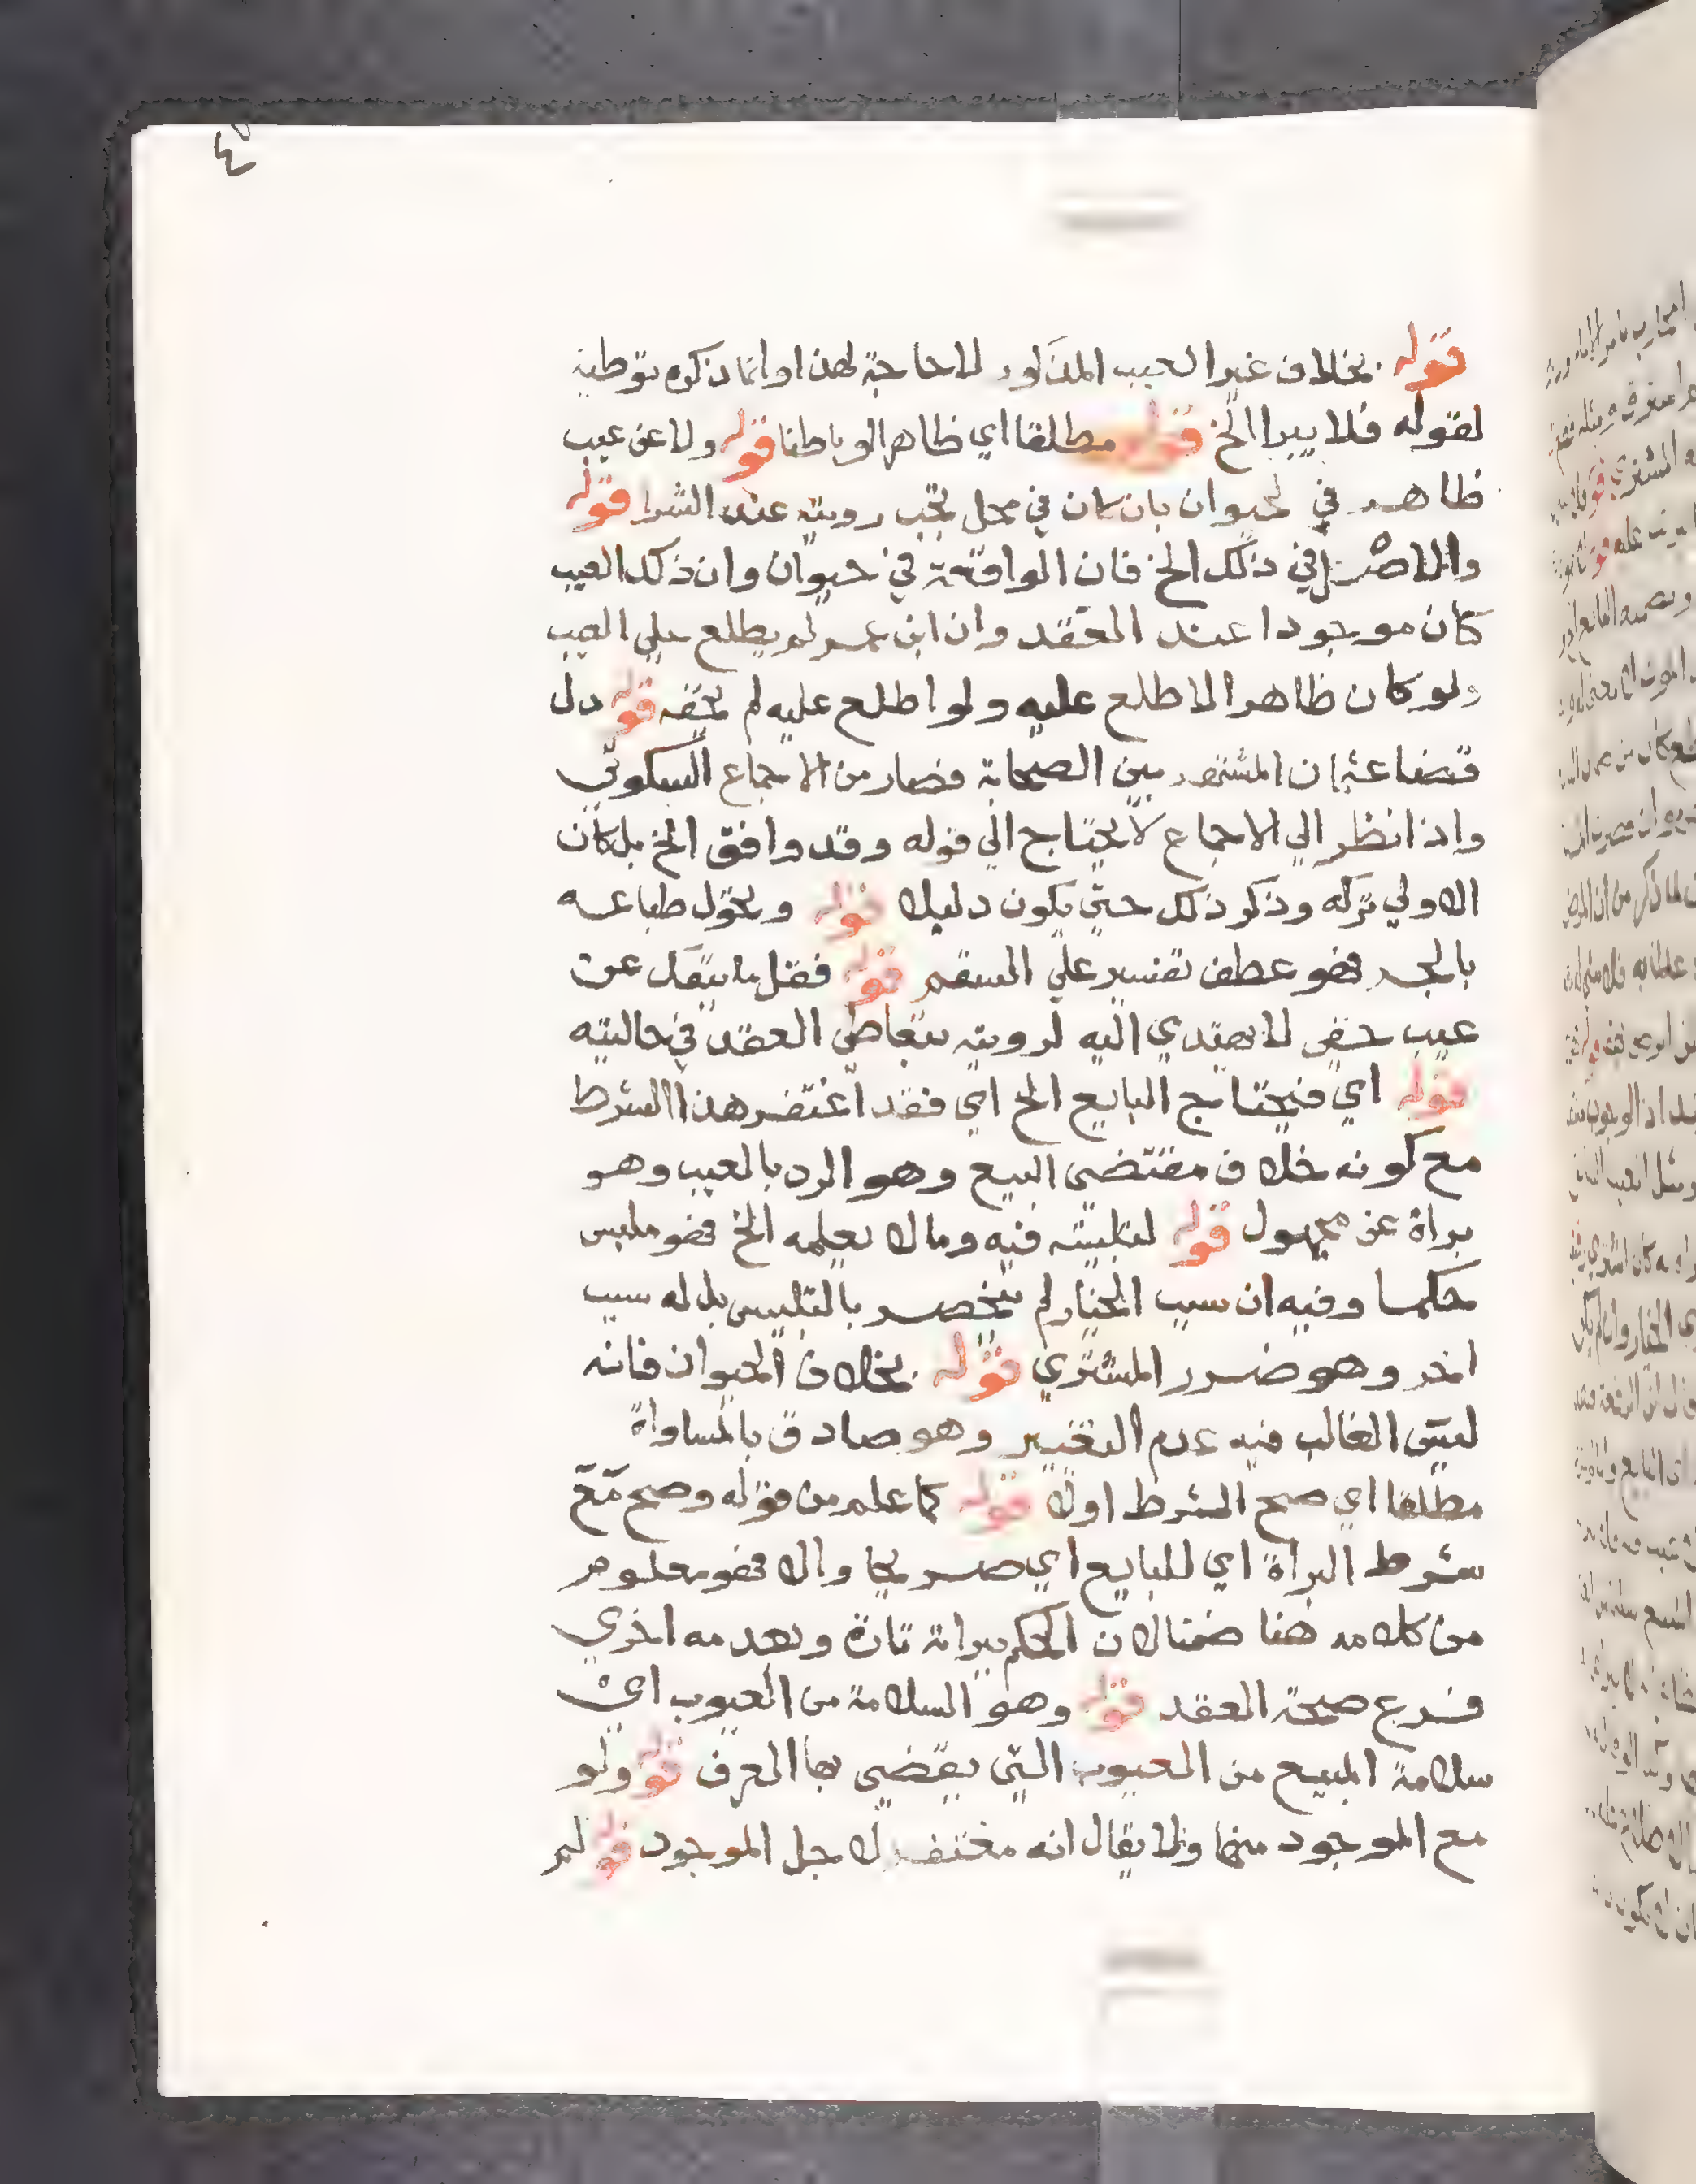 ٤٥
قوله بخلاف غير العيب المذكور لا حاجة لهذا وانما ذكره توطية
لقوله فلا يبرا الخ قوله مطلقا اي ظاهرا او باطنا قوله ولا عن عيب
ظاهر في لحيوان بان كان في محل تجب رويته عند الشرا قوله
والاصل في ذلك الخ فان الواقعة في حيوان وان ذلك العيب
كان موجودا عند العقد وان ابن عمر لم يطلع علي العيب
ولو كان ظاهرا لاطلع عليه ولو اطلع عليه لم يخفه قوله دل
قضا عثمان المشتهر بين الصحابة فصار من الاجماع السكوتي
واذا نظر الي الاجماع لا يحتاج الي قوله وقد وافق الخ بل كان
الاولي تركه وذكر ذلك حتي يكون دليلا قوله وتحول طباعه
بالجر فهو عطف تفسير علي السقم قوله فقل ما ينفك عن
عيب خفي لا يهتدي اليه لرويته بتعاطي العقد في حالتيه
قوله اي فيحتاج البايع الخ اي فقد اغتفر هذا الشرط
مع كونه خلاف مقتضي البيع وهو الرد بالعيب وهو
براة عن مجهول قوله لتلبيسه فيه وما لا يعلمه الخ فهو ملبس
حكما وفيه ان سبب الخيار لم ينحصر بالتلبيس بل له سبب
اخر وهو ضرر المشتري قوله بخلاف الحيوان فانه
ليس الغالب فيه عدم التغيير وهو صادق بالمساواة
مطلقا اي صح الشرط اولا قوله كما علم من قوله وصح مع
شرط البراة اي للبايع اي صريحا والا فهو معلوم
من كلامه هنا ضمنا لان الحكم ببراته تارة وبعدمه اخري
فرع صحة العقد قوله وهو السلامة من العيوب اي
سلامة المبيع من العيوب التي يقضي بها العرف قوله ولو
مع الموجود منها ولا يقال انه مغتفر لاجل الموجود قوله لم